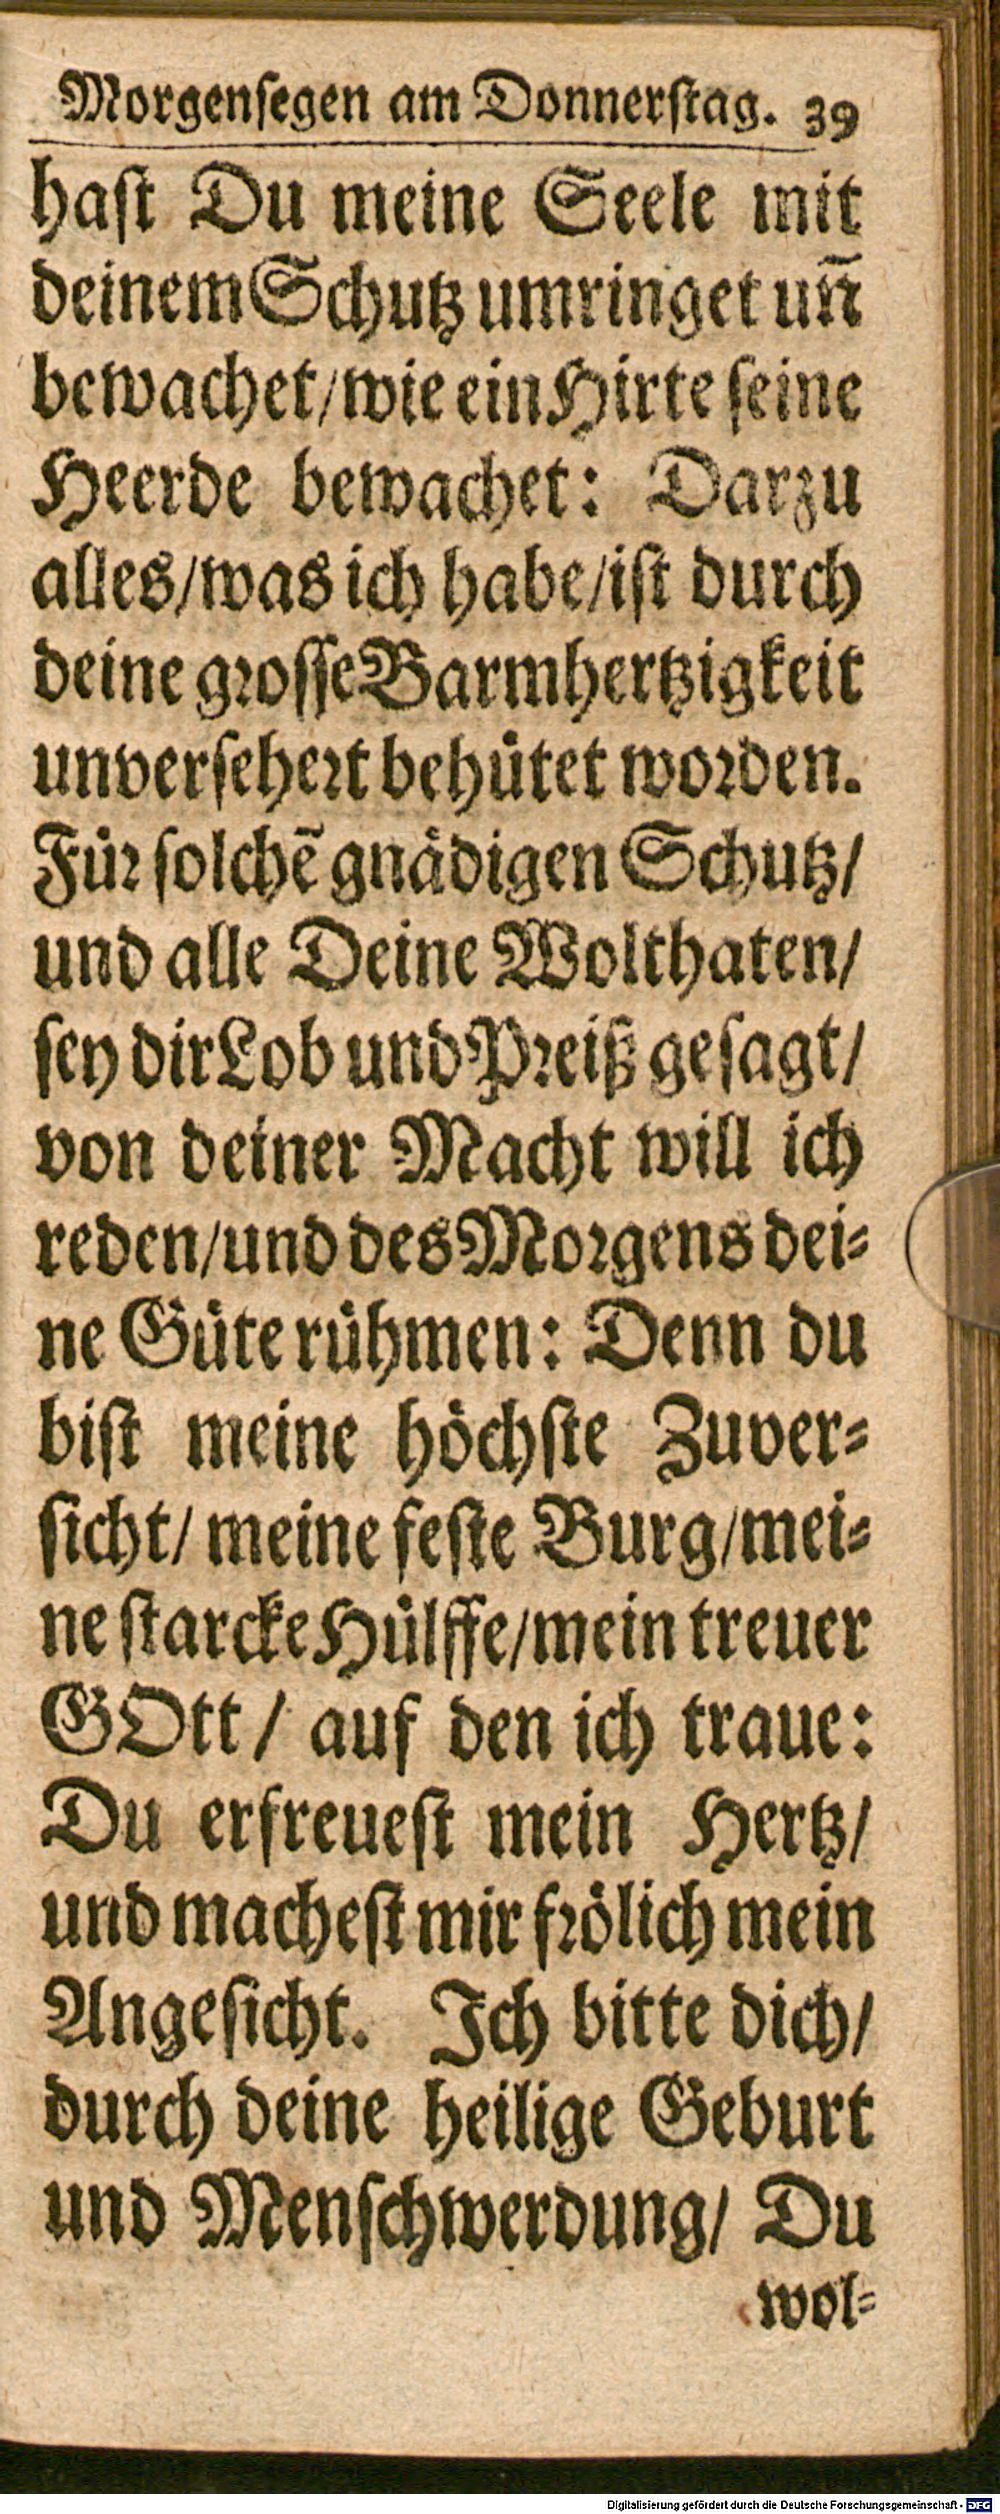 Morgenſegen am Donnerſtag. 39
haſt Du meine Seele mit
deinem Schutz umringet un̄
bewachet/wie ein Hirte ſeine
Heerde bewachet: Darzu
alles/was ich habe/iſt durch
deine groſſe Barmhertzigkeit
unverſehert behuͤtet worden.
Fuͤr ſolchē gnaͤdigen Schutz/
und alle Deine Wolthaten/
ſey dir Lob und Preiß geſagt/
von deiner Macht will ich
reden/und des Morgens dei⸗
ne Guͤte ruͤhmen: Denn du
biſt meine hoͤchſte Zuver⸗
ſicht/ meine feſte Burg/mei⸗
ne ſtarcke Huͤlffe/mein treuer
GOtt/ auf den ich traue:
Du erfreueſt mein Hertz/
und macheſt mir froͤlich mein
Angeſicht. Ich bitte dich/
durch deine heilige Geburt
und Menſchwerdung/ Du
wol⸗
Digitalisierung gefördert durch die Deutsche Forschungsgemeinschaft - DFG